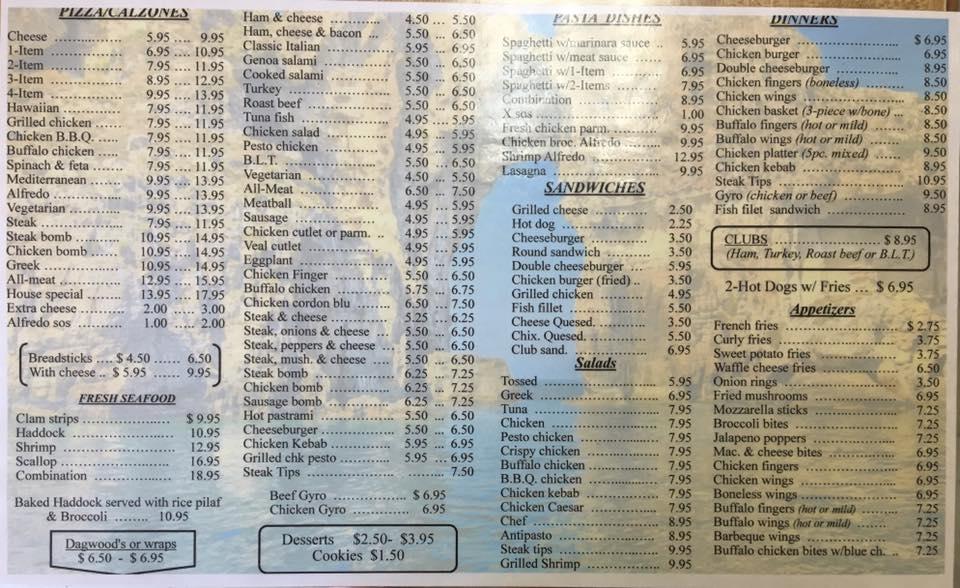 PIZZA/CALZONES
Cheese .................. 5.95 ... 9.95
1-Item .................. 6.95 ... 10.95
2-Item .................. 7.95 .... 11.95
3-Item .................. 8.95 .... 12.95
4-Item .................. 9.95 .... 13.95
Hawaiian .............. 7.95 .... 11.95
Grilled chicken ..... 7.95 .... 11.95
Chicken B.B.Q. ..... 7.95 .... 11.95
Buffalo chicken ..... 7.95 .... 11.95
Spinach & feta ....... 7.95 .... 11.95
Mediterranean ....... 9.95 .... 13.95
Alfredo ................. 9.95 .... 13.95
Vegetarian ............ 9.95 .... 13.95
Steak .................... 7.95 .... 11.95
Steak bomb .......... 10.95 .... 14.95
Chicken bomb ...... 10.95 .... 14.95
Greek ................... 10.95 .... 14.95
All-meat ............... 12.95 .... 15.95
House special ....... 13.95 .... 17.95
Extra cheese ......... 2.00 .... 3.00
Alfredo sos ........... 1.00 .... 2.00
Breadsticks .... $ 4.50 ...... 6.50
With cheese .. $ 5.95 ...... 9.95
FRESH SEAFOOD
Clam strips ...................... $ 9.95
Haddock ......................... 10.95
Shrimp ............................ 12.95
Scallop ............................ 16.95
Combination ................... 18.95
Baked Haddock served with rice pilaf
& Broccoli ........ 10.95
Dagwood's or wraps
$ 6.50 - $ 6.95
Ham & cheese .................. 4.50 ... 5.50
Ham, cheese & bacon ... 5.50 ... 6.50
Classic Italian ................ 5.95 ... 6.95
Genoa salami ................ 5.50 ... 6.50
Cooked salami .............. 5.50 ... 6.50
Turkey .......................... 5.50 ... 6.50
Roast beef ..................... 5.50 ... 6.50
Tuna fish ....................... 4.95 ... 5.95
Chicken salad ............... 4.95 ... 5.95
Pesto chicken ................ 4.95 ... 5.95
B.L.T. ........................... 5.50 ... 6.50
Vegetarian ..................... 4.50 ... 5.50
All-Meat ........................ 6.50 ... 7.50
Meatball ........................ 4.95 ... 5.95
Sausage ......................... 4.95 ... 5.95
Chicken cutlet or parm. .. 4.95 ... 5.95
Veal cutlet ..................... 4.95 ... 5.95
Eggplant ........................ 4.95 ... 5.95
Chicken Finger .............. 5.50 ... 6.50
Buffalo chicken ............. 5.75 ... 6.75
Chicken cordon blu ....... 6.50 ... 7.50
Steak & cheese .............. 5.25 ... 6.25
Steak, onions & cheese .. 5.50 ... 6.50
Steak, peppers & cheese .. 5.50 ... 6.50
Steak, mush. & cheese ... 5.50 ... 6.50
Steak bomb ................... 6.25 ... 7.25
Chicken bomb ............... 6.25 ... 7.25
Sausage bomb ............... 6.25 ... 7.25
Hot pastrami .................. 5.50 ... 6.50
Cheeseburger ................. 5.50 ... 6.50
Chicken Kebab .............. 5.95 ... 6.95
Grilled chk pesto ........... 5.95 ... 6.95
Steak Tips ............................ 7.50
Beef Gyro ................. $ 6.95
Chicken Gyro ............. 6.95
Desserts $2.50- $3.95
Cookies $1.50
PASTA DISHES
Spaghetti w/marinara sauce .. 5.95
Spaghetti w/meat sauce ...... 6.95
Spaghetti w/1-Item ............. 6.95
Spaghetti w/2-Items ............ 7.95
Combination ....................... 8.95
X sos .................................. 1.00
Fresh chicken parm. ............ 9.95
Chicken broc. Alfredo .......... 9.95
Shrimp Alfredo ................... 12.95
Lasagna .............................. 9.95
SANDWICHES
Grilled cheese ................ 2.50
Hot dog ......................... 2.25
Cheeseburger ................. 3.50
Round sandwich ............ 3.50
Double cheeseburger ..... 5.95
Chicken burger (fried) .. 3.50
Grilled chicken .............. 4.95
Fish fillet ....................... 5.50
Cheese Quesed. .............. 3.50
Chix. Quesed. ................. 5.50
Club sand. ...................... 6.95
Salads
Tossed ............................ 5.95
Greek .............................. 6.95
Tuna ................................ 7.95
Chicken ........................... 7.95
Pesto chicken .................. 7.95
Crispy chicken ................ 7.95
Buffalo chicken ............... 7.95
B.B.Q. chicken ................ 7.95
Chicken kebab ................. 7.95
Chicken Caesar ................ 7.95
Chef ................................. 8.95
Antipasto ......................... 8.95
Steak tips ......................... 9.95
Grilled Shrimp ................. 9.95
DINNERS
Cheeseburger ........................... $ 6.95
Chicken burger ........................ 6.95
Double cheeseburger ............... 8.95
Chicken fingers (boneless) ....... 8.50
Chicken wings ......................... 8.50
Chicken basket (3-piece w/bone) ... 8.50
Buffalo fingers (hot or mild) ...... 8.50
Buffalo wings (hot or mild) ....... 8.50
Chicken platter (5pc. mixed) ...... 9.50
Chicken kebab ......................... 8.95
Steak Tips ............................... 10.95
Gyro (chicken or beef) .............. 9.50
Fish filet sandwich ................... 8.95
CLUBS ........................ $ 8.95
(Ham, Turkey, Roast beef or B.L.T.)
2-Hot Dogs w/ Fries ... $ 6.95
Appetizers
French fries ............................ $ 2.75
Curly fries .............................. 3.75
Sweet potato fries .................... 3.75
Waffle cheese fries .................. 6.50
Onion rings ............................. 3.50
Fried mushrooms .................... 6.95
Mozzarella sticks .................... 7.25
Broccoli bites .......................... 7.25
Jalapeno poppers ..................... 7.25
Mac. & cheese bites ................ 6.95
Chicken fingers ....................... 6.95
Chicken wings ......................... 6.95
Boneless wings ....................... 6.95
Buffalo fingers (hot or mild) ..... 7.25
Buffalo wings (hot or mild) ...... 7.25
Barbeque wings ...................... 7.25
Buffalo chicken bites w/blue ch. .. 7.25